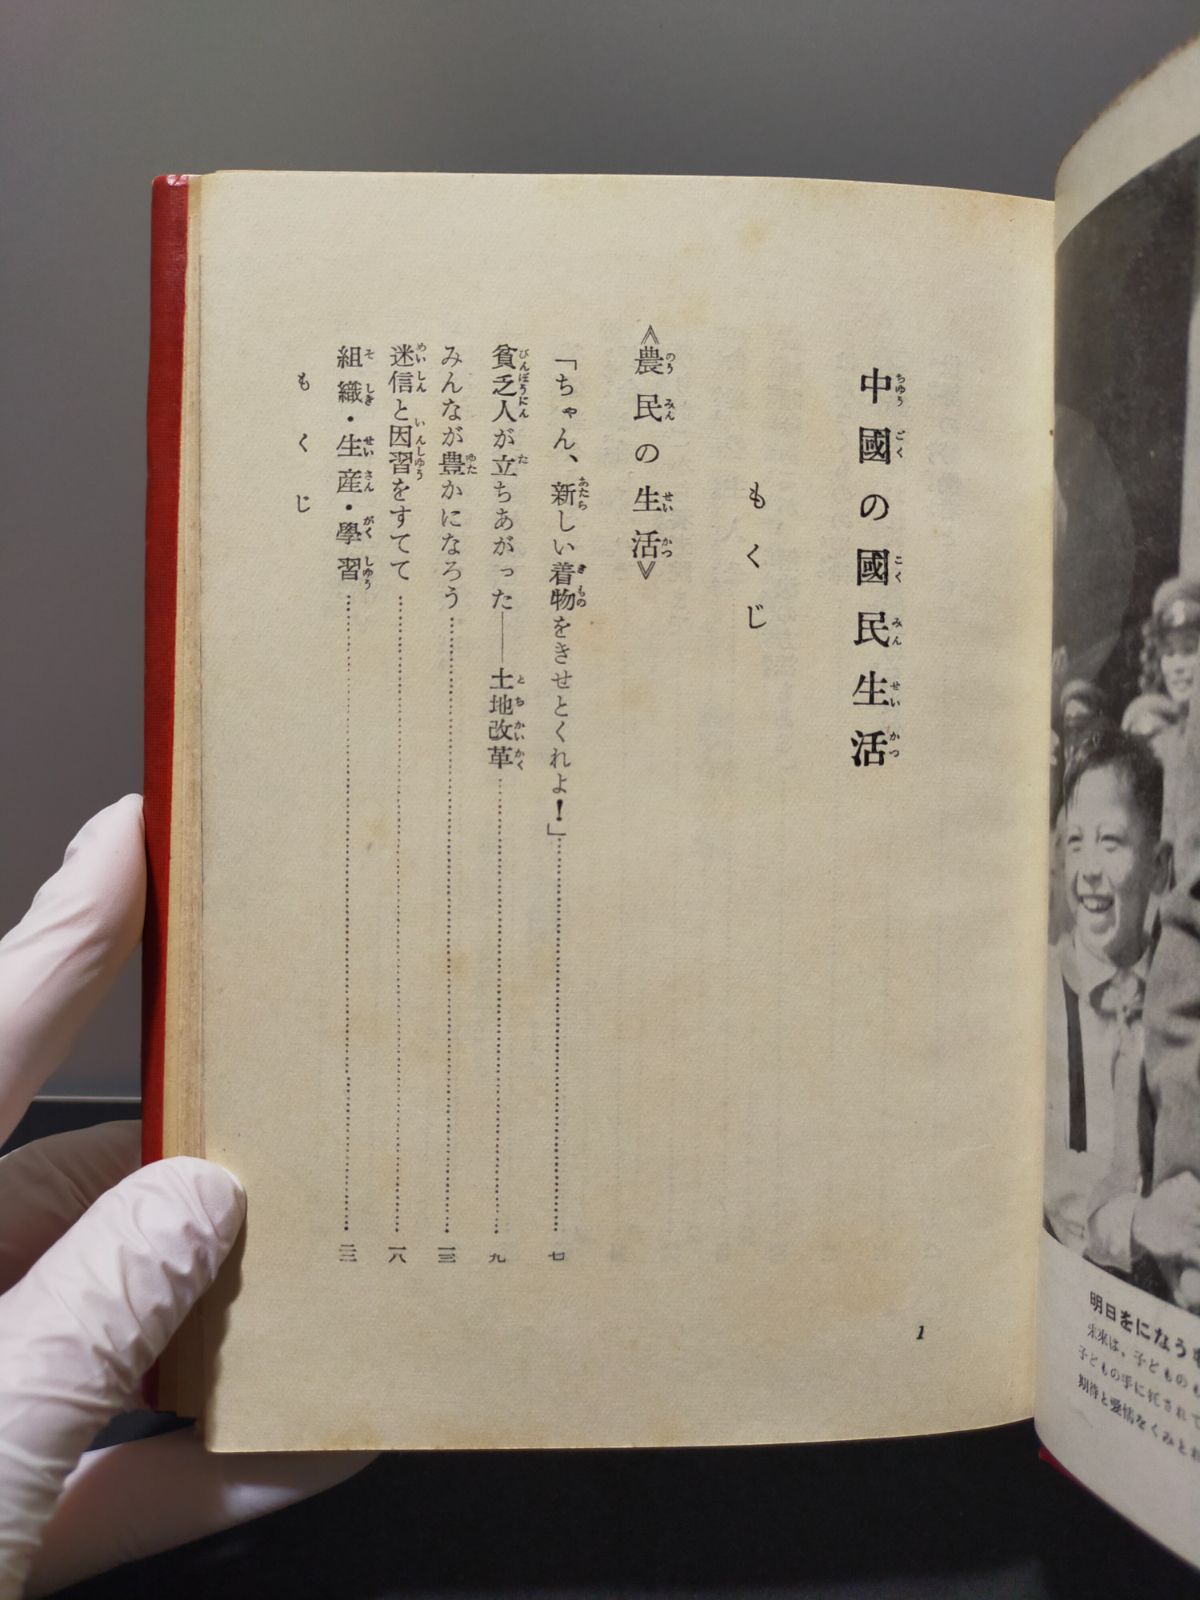 中國の國民生活
もくじ
《農民の生活》
「ちゃん、新しい着物をきせとくれよ!」…………七
貧乏人が立ちあがった——土地改革…………九
みんなが豊かになろう…………一三
迷信と因習をすてて…………一八
組織・生産・學習…………二三
もくじ
1
明日をになう
未來は、子どものも
子どもの手に託されて
期待と愛情をくみとれ